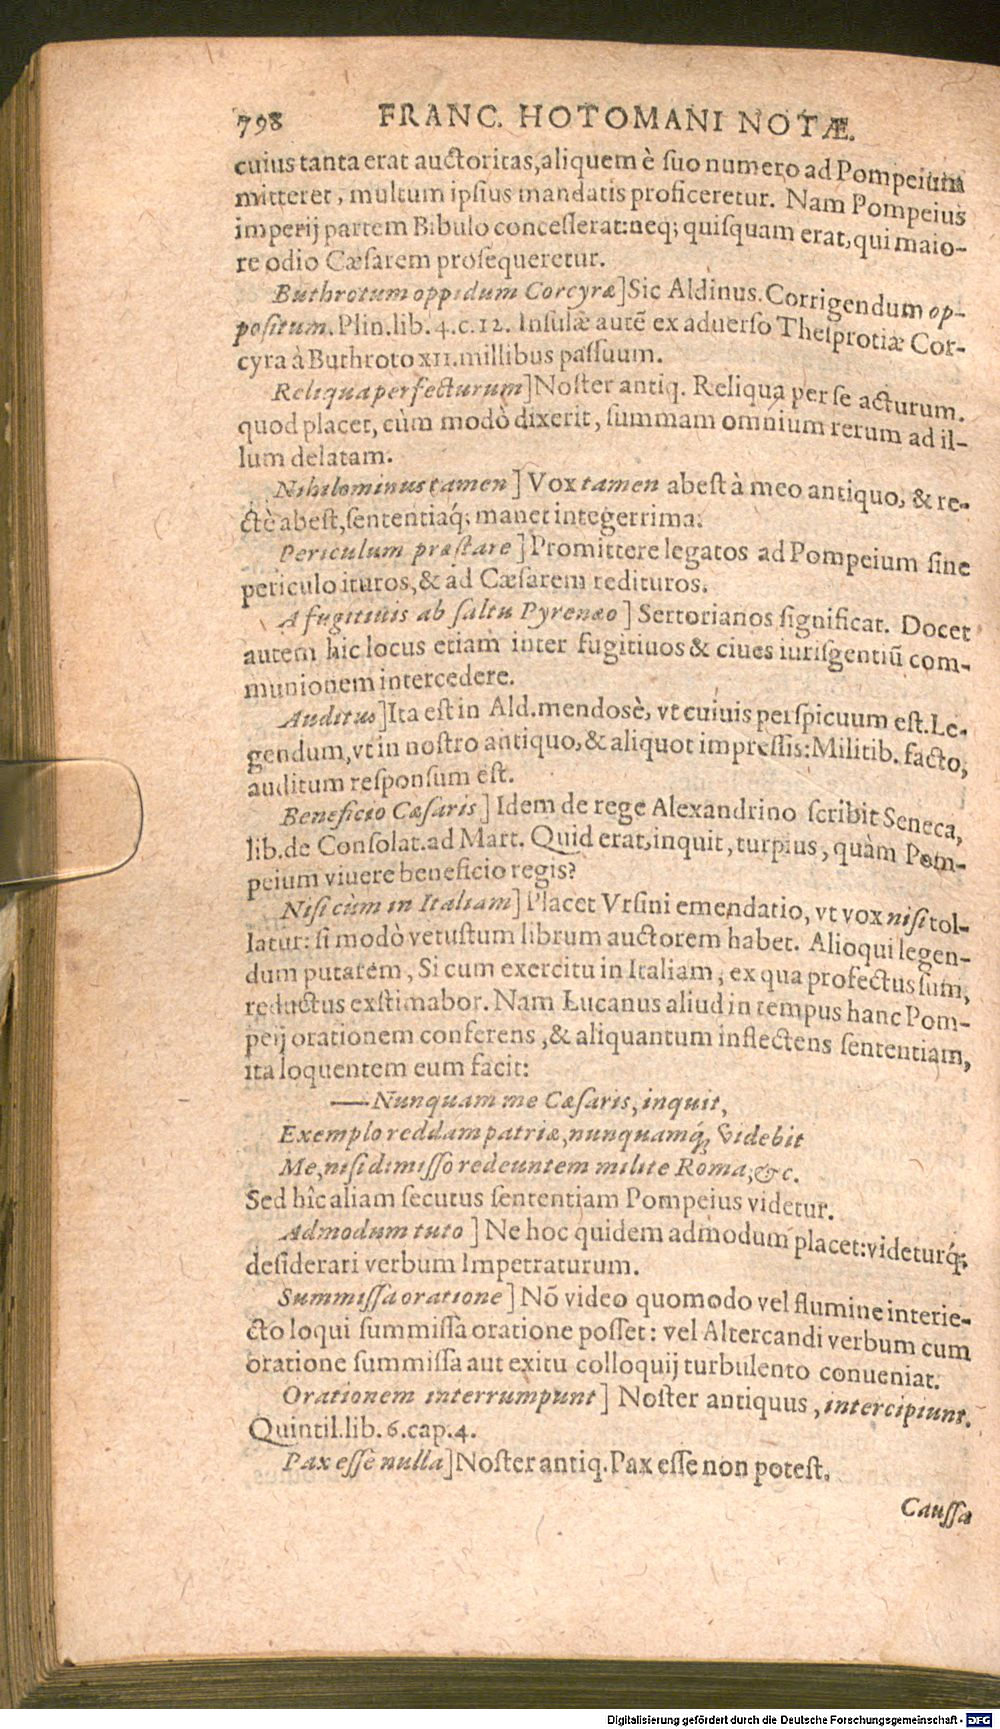 798 FRANC. HOTOMANI NOTÆ.
cuius tanta erat auctoritas, aliquem è ſuo numero ad Pompeium
mitteret, multum ipſius mandatis proficeretur. Nam Pompeius
imperij partem Bibulo conceſſerat: neq; quiſquam erat, qui maio-
re odio Cæſarem proſequeretur.
Buthrotum oppidum Corcyræ] Sic Aldinus. Corrigendum op-
poſitum. Plin. lib. 4. c. 12. Inſulæ autẽ ex aduerſo Theſprotiæ Cor-
cyra à Buthroto XII. millibus paſſuum.
Reliqua perfecturum] Noſter antiq. Reliqua per ſe acturum.
quod placet, cùm modò dixerit, ſummam omnium rerum ad il-
lum delatam.
Nihilominus tamen] Vox tamen abeſt à meo antiquo, & re-
ctè abeſt, ſententiaq́; manet integerrima.
Periculum præſtare] Promittere legatos ad Pompeium ſine
periculo ituros, & ad Cæſarem redituros.
A fugitiuis ab ſaltu Pyrenæo] Sertorianos ſignificat. Docet
autem hic locus etiam inter fugitiuos & ciues iuriſgentiũ com-
munionem intercedere.
Auditus] Ita eſt in Ald. mendosè, vt cuiuis perſpicuum eſt. Le-
gendum, vt in noſtro antiquo, & aliquot impreſſis: Militib. facto,
auditum reſponſum eſt.
Beneficio Cæſaris] Idem de rege Alexandrino ſcribit Seneca,
lib. de Conſolat. ad Mart. Quid erat, inquit, turpius, quàm Pom-
peium viuere beneficio regis?
Niſi cùm in Italiam] Placet Vrſini emendatio, vt vox niſi tol-
latur: ſi modò vetuſtum librum auctorem habet. Alioqui legen-
dum putarem, Si cum exercitu in Italiam, ex qua profectus ſum,
reductus exſtimabor. Nam Lucanus aliud in tempus hanc Pom-
peij orationem conferens, & aliquantum inflectens ſententiam,
ita loquentem eum facit:
—Nunquam me Cæſaris, inquit,
Exemplo reddam patriæ, nunquamq́; videbit
Me, niſi dimiſſo redeuntem milite Roma, &c.
Sed hîc aliam ſecutus ſententiam Pompeius videtur.
Admodum tuto] Ne hoc quidem admodum placet: videturq́;
deſiderari verbum Impetraturum.
Summiſſa oratione] Nõ video quomodo vel flumine interie-
cto loqui ſummiſſa oratione poſſet: vel Altercandi verbum cum
oratione ſummiſſa aut exitu colloquij turbulento conueniat.
Orationem interrumpunt] Noſter antiquus, intercipiunt.
Quintil. lib. 6. cap. 4.
Pax eſſe nulla] Noſter antiq. Pax eſſe non poteſt.
Cauſſa
Digitalisierung gefördert durch die Deutsche Forschungsgemeinschaft - DFG